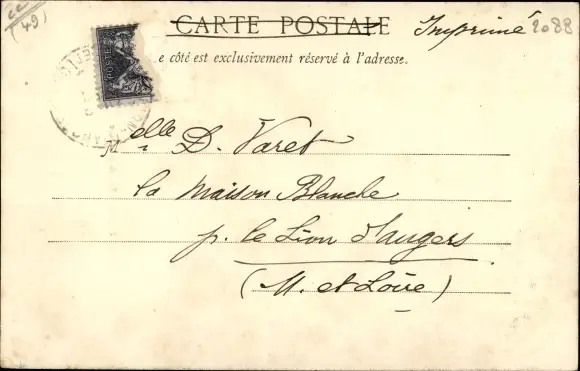 cc
(49)
CARTE POSTALE Imprimé 2088
e côté est exclusivement réservé à l'adresse.
POSTES
Melle D. Varet
la Maison Blanche
p. le Lion d'Angers
(M. et Loire)